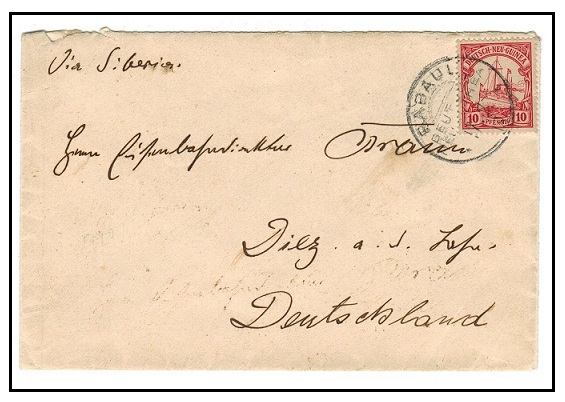 Via Siberia.
DEUTSCH-NEU-GUINEA
10 PFENNIG 10
RABAUL
Herrn Eisenbahndirektor
Diez a. d. Lahn
Deutschland